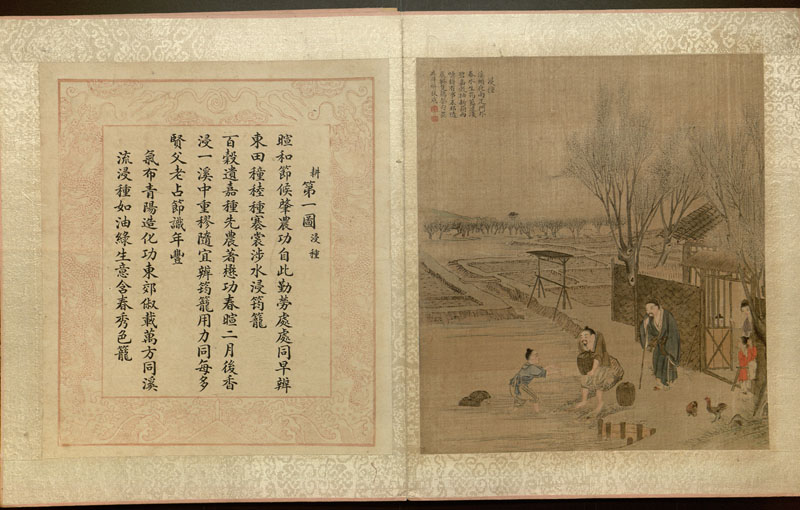 耕 第一圖 浸種
暄和節候肇農功自此勤勞處處同早辨
東田穜稑種褰裳涉水浸筠籠
百穀遺嘉種先農著懋功春暄二月後香
浸一溪中重穋隨宜辨筠籠用力同每多
賢父老占節識年豐
氣布青陽造化功東郊俶載萬方同溪
流浸種如油綠生意含春秀色籠
浸種